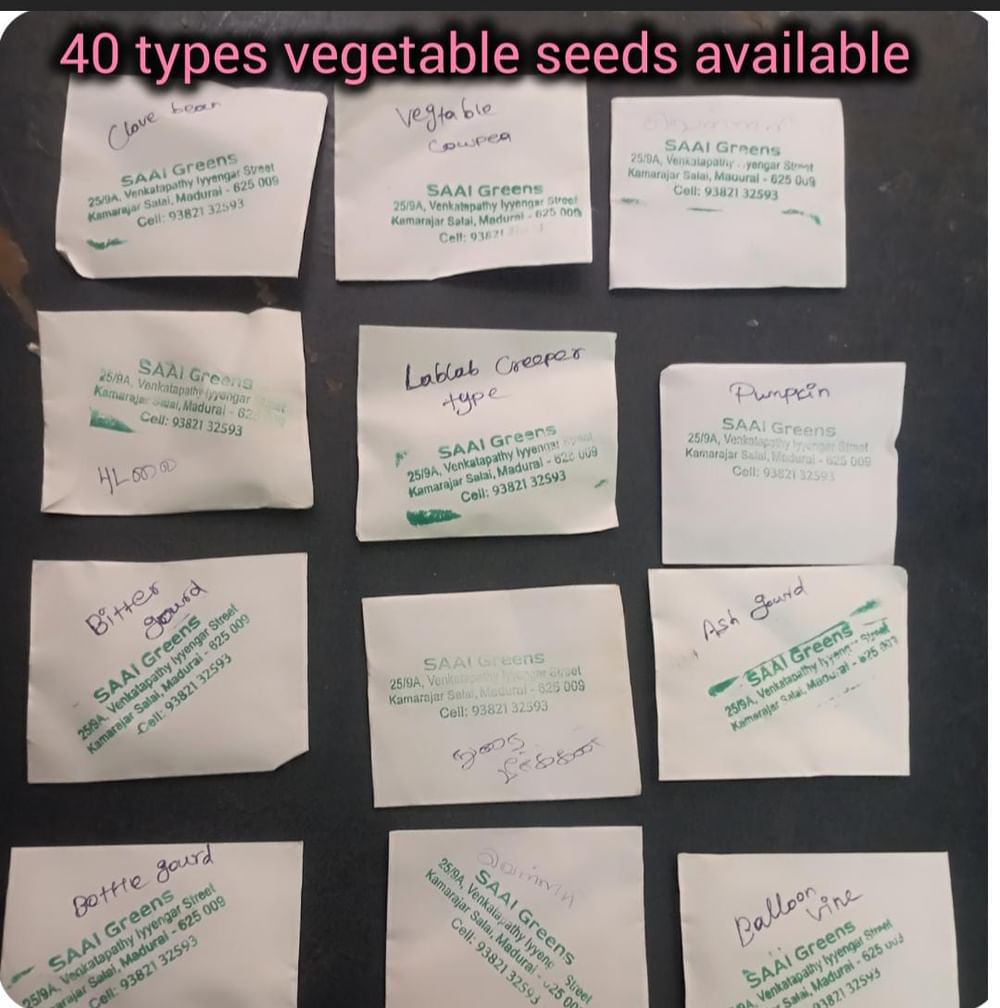 40 types vegetable seeds available
Clove bean
SAAI Greens
25/9A, Venkatapathy Iyyengar Street
Kamarajar Salai, Madurai - 625 009
Cell: 93821 32593
Vegtable
Cowpea
SAAI Greens
25/9A, Venkatapathy Iyyengar Street
Kamarajar Salai, Madurai - 625 009
Cell: 93821
SAAI Greens
25/9A, Venkatapathy yengar Street
Kamarajar Salai, Madurai - 625 009
Cell: 93821 32593
SAAI Greens
25/9A, Venkatapathy Iyyengar
Kamarajar Salai, Madurai - 62
Cell: 93821 32593
Lablab Creeper
type
SAAI Greens
25/9A, Venkatapathy Iyyengar Street
Kamarajar Salai, Madurai - 625 009
Cell: 93821 32593
Pumpkin
SAAI Greens
25/9A, Venkatapathy Iyyengar Street
Kamarajar Salai, Madurai - 625 009
Cell: 93821 32593
Bitter
gourd
SAAI Greens
25/9A, Venkatapathy Iyyengar Street
Kamarajar Salai, Madurai - 625 009
Cell: 93821 32593
SAAI Greens
25/9A, Venkatapathy Iyyengar Street
Kamarajar Salai, Madurai - 625 009
Cell: 93821 32593
Ash gourd
SAAI Greens
25/9A, Venkatapathy Iyyengar Street
Kamarajar Salai, Madurai - 625 009
Bottle gourd
SAAI Greens
25/9A, Venkatapathy Iyyengar Street
marajar Salai, Madurai - 625 009
Cell: 93821 32593
SAAI Greens
25/9A, Venkatapathy Iyyeng Street
Kamarajar Salai, Madurai - 625 00
Cell: 93821 32593
Balloon
vine
SAAI Greens
9A, Venkatapathy Iyyengar Street
Salai, Madurai - 625 009
Cell: 93821 32593